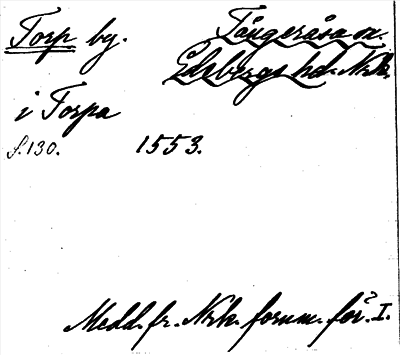 Torp by. Tångeråsa sn.
Edsbergs hd. Nrk.
i Torpa
f. 130. 1553.
Medd. fr. Nrk. fornm. för. I.